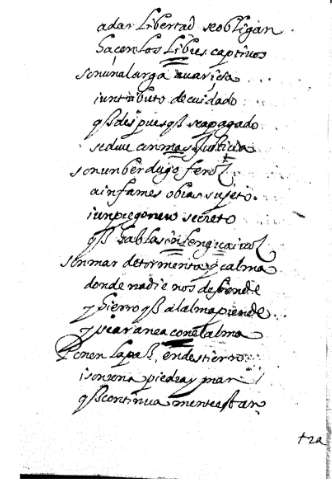 a dar libertad se obligan
hacen los libres captivos
son una larga avariçia
i un tributo de cuidado
q̃ despues q̃ se a pagado
se deve con mas justicia
son un berdugo feroz
a infames obras sujeto
i un pregonero secreto
q̃ habla sin lengua i voz
son mar de tormenta y calma
donde nadie nos defiende
y hierro q̃ al alma prende
y se arranca con el alma
Ponen la paz en destierro
i son una piedra y mar
q̃ continuamente estan